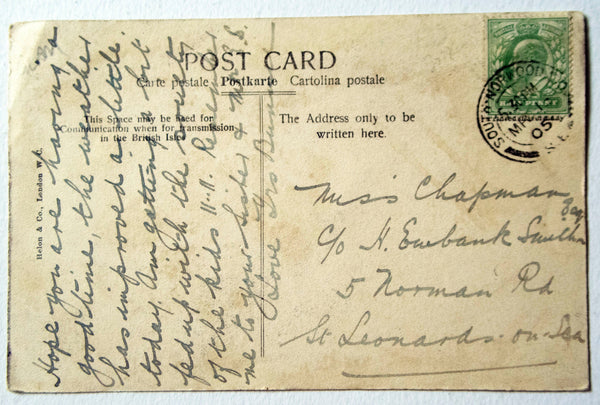 POST CARD
Carte postale Postkarte Cartolina postale
This Space may be used for
Communication when for transmission
in the British Isles
The Address only to be
written here.
Helon & Co., London W.C.
SOUTH NORWOOD
05
S.E.
Hope you are having a
good time, the weather
has improved a little
today. Am getting a bit
fed up with the
of the kids 11-11. Remember
me to your sister & Mr
Love
Miss Chapman
c/o H. Ewbank Smith Esq
5 Norman Rd
St Leonards-on-Sea